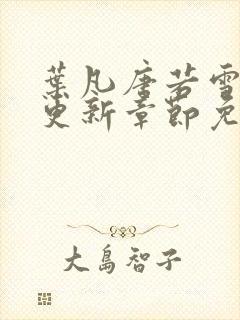 葉凡唐若雪
更新章節免
大島智子